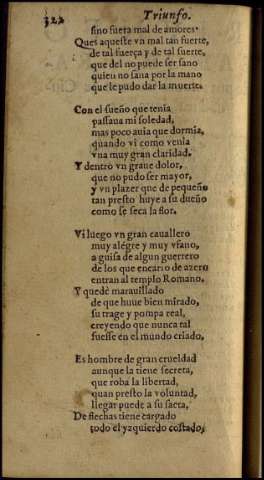 322
Triunfo.
sino fuera mal de amores.
Ques aqueste vn mal tan fuerte,
de tal fuerça y de tal suerte,
que del no puede ser sano
quien no sana por la mano
que le pudo dar la muerte.
Con el sueño que tenia
passaua mi soledad,
mas poco auia que dormia,
quando vi como venia
vna muy gran claridad.
Y dentro vn graue dolor,
que no pudo ser mayor,
y vn plazer que de pequeño
tan presto huye a su dueño
como se seca la flor.
Vi luego vn gran cauallero
muy alégre y muy vfano,
a guisa de algun guerrero
de los que en carro de azero
entran al templo Romano.
Y quedé marauillado
de que huue bien mirado,
su trage y pompa real,
creyendo que nunca tal
fuesse en el mundo criado.
Es hombre de gran crueldad
aunque la tiene secreta,
que roba la libertad,
quan presto la voluntad,
llegar puede a su saeta,
De flechas tiene cargado
todo el yzquierdo costado,